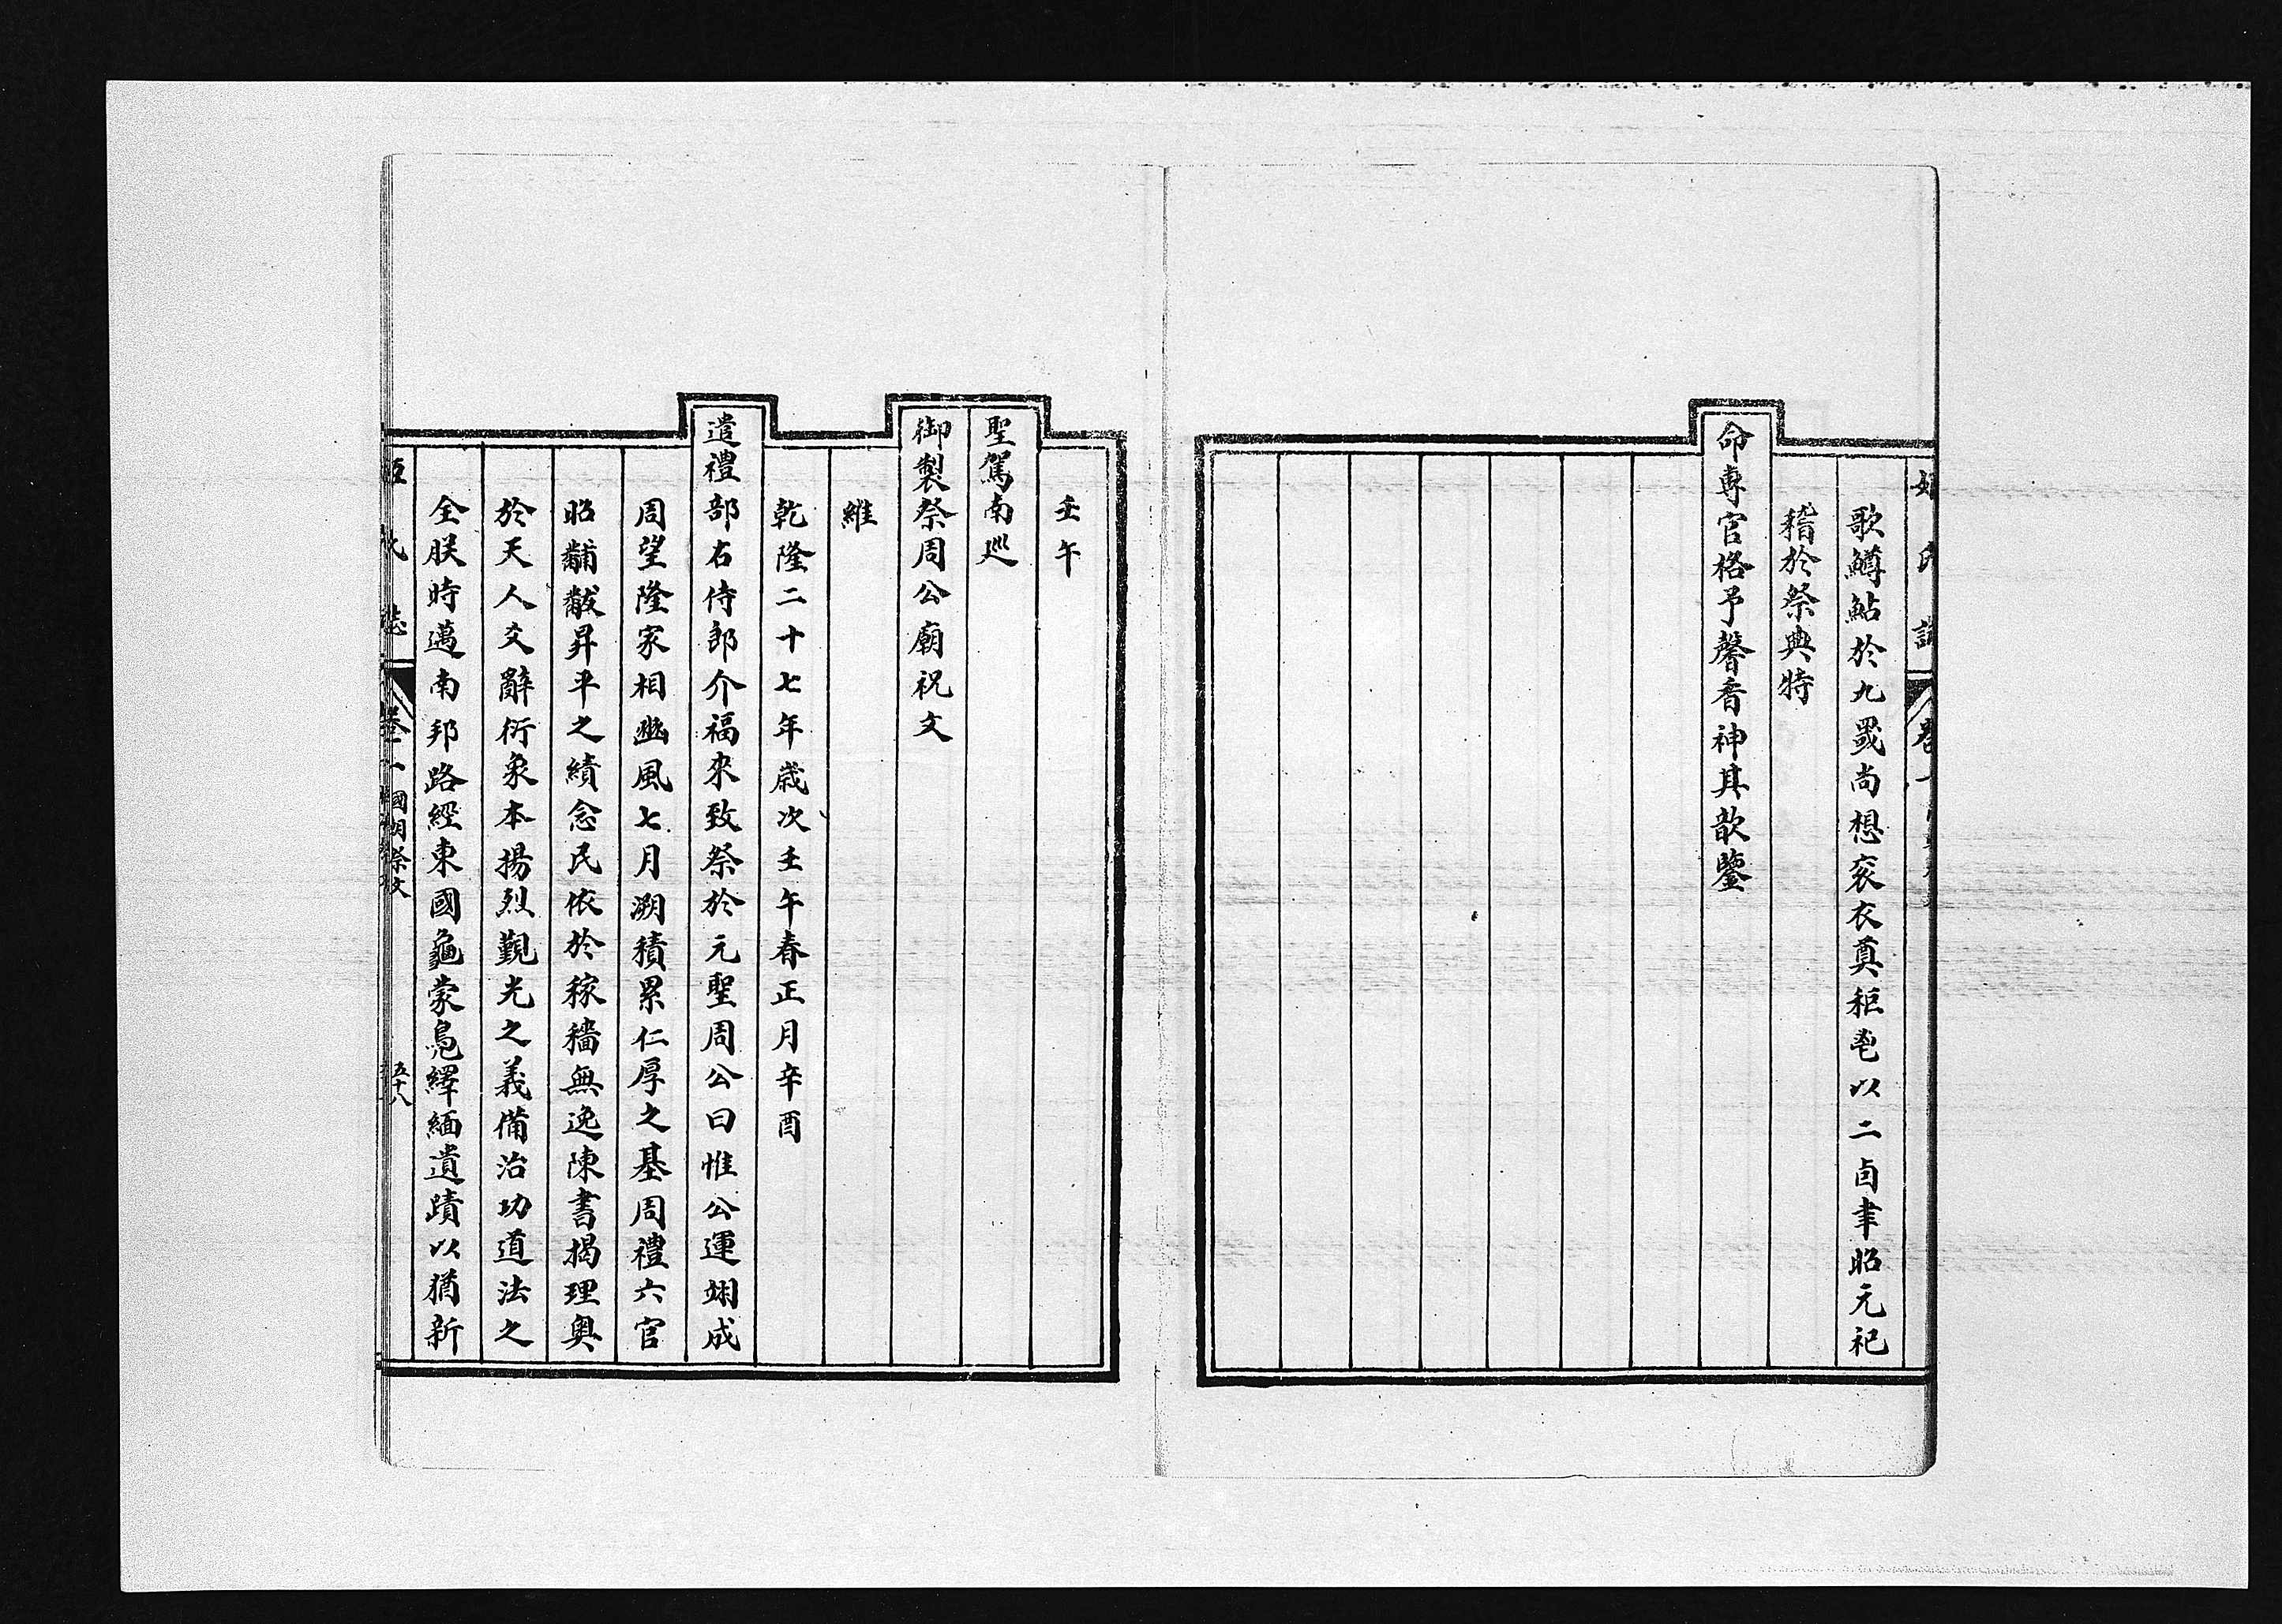 歌鱒鮎於九罭尚想衮衣奠秬鬯以二卣聿昭元祀
稽於祭典特
命專官格予馨香神其歆鑒
壬午
聖駕南巡
御製祭周公廟祝文
維
乾隆二十七年歳次壬午春正月辛酉
遣禮部右侍郎介福來致祭於元聖周公曰惟公運翊成
周望隆家相豳風七月溯積累仁厚之基周禮六官
昭黼黻昇平之績念民依於稼穡無逸陳書揭理奥
於天人爻辭衍象本揚烈覲光之義備治功道法之
全朕時邁南邦路經東國龜蒙鳧繹緬遺蹟以猶新
國朝祭文
五十八